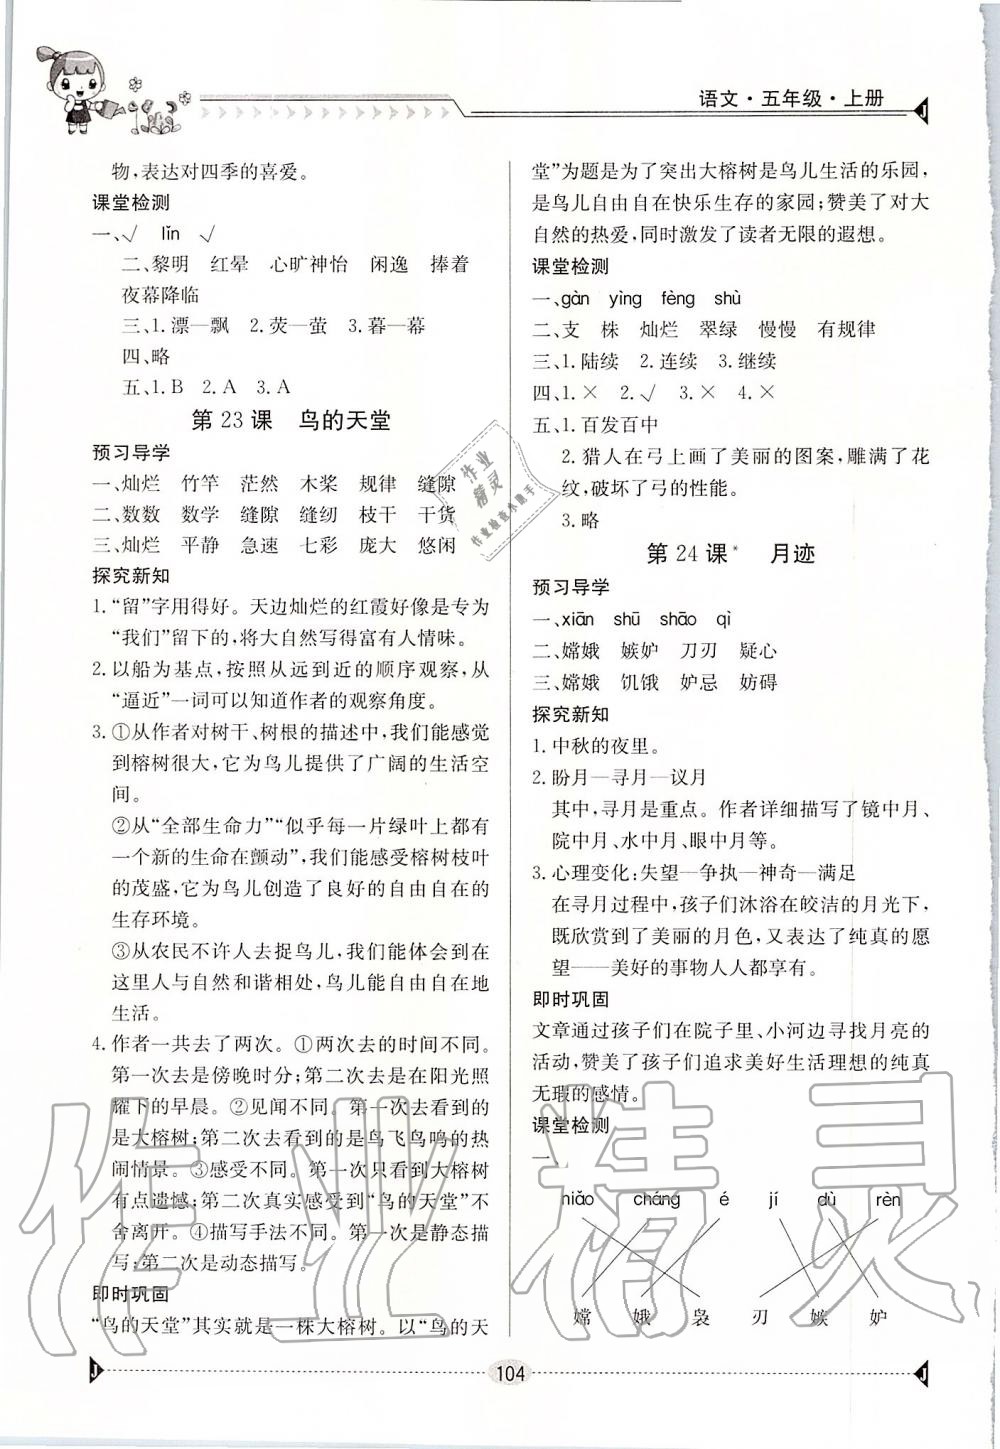 语文·五年级·上册
物,表达对四季的喜爱。
课堂检测
一、√ lǐn √
二、黎明 红晕 心旷神怡 闲逸 捧着
夜幕降临
三、1.漂—飘 2.荧—萤 3.暮—幕
四、略
五、1.B 2.A 3.A
第23课 鸟的天堂
预习导学
一、灿烂 竹竿 茫然 木桨 规律 缝隙
二、数数 数学 缝隙 缝纫 枝干 干货
三、灿烂 平静 急速 七彩 庞大 悠闲
探究新知
1.“留”字用得好。天边灿烂的红霞好像是专为
“我们”留下的,将大自然写得富有人情味。
2.以船为基点,按照从远到近的顺序观察,从
“逼近”一词可以知道作者的观察角度。
3.①从作者对树干、树根的描述中,我们能感觉
到榕树很大,它为鸟儿提供了广阔的生活空
间。
②从“全部生命力”“似乎每一片绿叶上都有
一个新的生命在颤动”,我们能感受榕树枝叶
的茂盛,它为鸟儿创造了良好的自由自在的
生存环境。
③从农民不许人去捉鸟儿,我们能体会到在
这里人与自然和谐相处,鸟儿能自由自在地
生活。
4.作者一共去了两次。①两次去的时间不同。
第一次去是傍晚时分;第二次去是在阳光照
耀下的早晨。②见闻不同。第一次去看到的
是大榕树;第二次去看到的是鸟飞鸟鸣的热
闹情景。③感受不同。第一次只看到大榕树
有点遗憾;第二次真实感受到“鸟的天堂”不
舍离开。④描写手法不同。第一次是静态描
写;第二次是动态描写。
即时巩固
“鸟的天堂”其实就是一株大榕树。以“鸟的天
堂”为题是为了突出大榕树是鸟儿生活的乐园,
是鸟儿自由自在快乐生存的家园;赞美了对大
自然的热爱,同时激发了读者无限的遐想。
课堂检测
一、gàn yìng fèng shù
二、支 株 灿烂 翠绿 慢慢 有规律
三、1.陆续 2.连续 3.继续
四、1.× 2.√ 3.× 4.×
五、1.百发百中
2.猎人在弓上画了美丽的图案,雕满了花
纹,破坏了弓的性能。
3.略
第24课* 月迹
预习导学
一、xiān shū shāo qì
二、嫦娥 嫉妒 刀刃 疑心
三、嫦娥 饥饿 妒忌 妨碍
探究新知
1.中秋的夜里。
2.盼月—寻月—议月
其中,寻月是重点。作者详细描写了镜中月、
院中月、水中月、眼中月等。
3.心理变化:失望—争执—神奇—满足
在寻月过程中,孩子们沐浴在皎洁的月光下,
既欣赏到了美丽的月色,又表达了纯真的愿
望——美好的事物人人都享有。
即时巩固
文章通过孩子们在院子里、小河边寻找月亮的
活动,赞美了孩子们追求美好生活理想的纯真
无瑕的感情。
课堂检测
一、
niǎo cháng é jí dù rèn
嫦 娥 袅 刃 嫉 妒
104
作业精灵
作业检查小助手
作业精灵